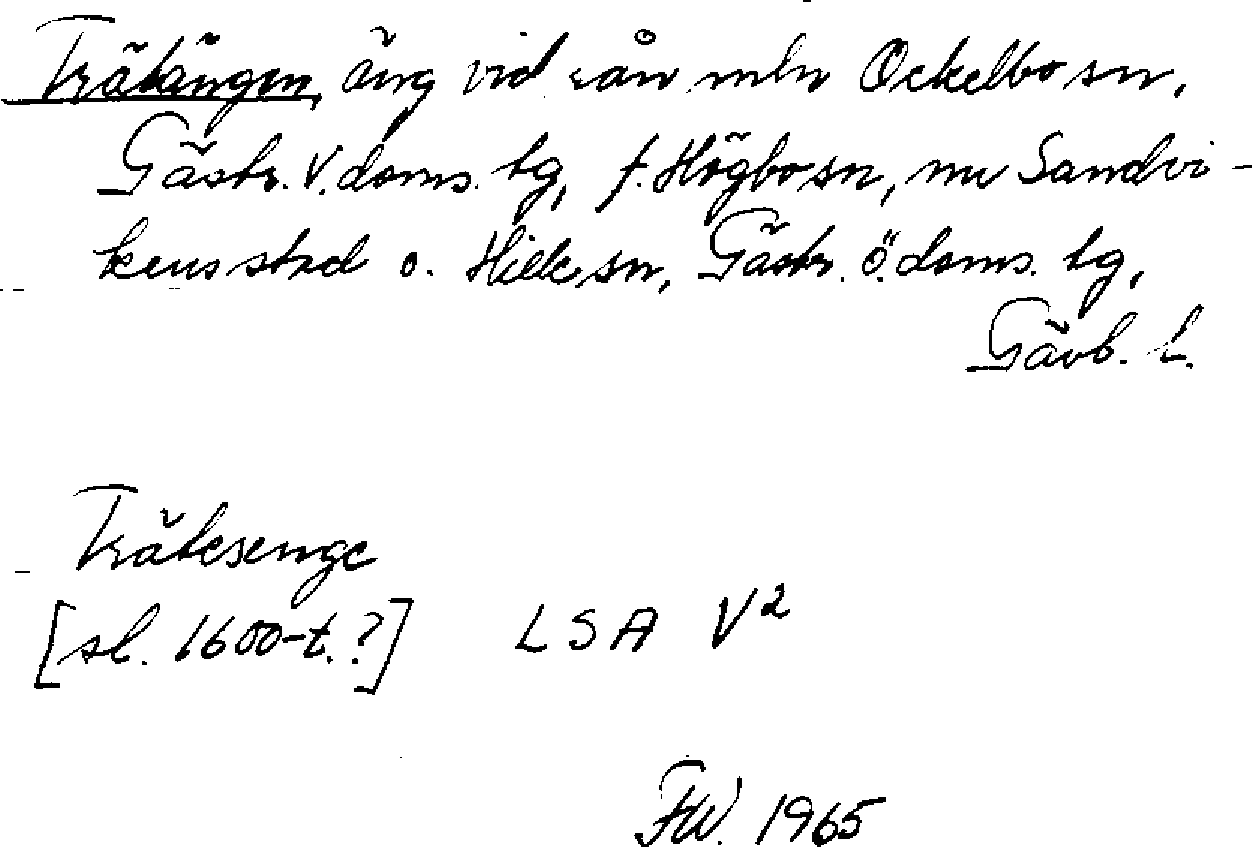 Trätängen, äng vid rån mln Ockelbo sn,
Gästr. V. doms. tg, f. Högbo sn, nu Sandvi-
kens stad o. Hille sn, Gästr. ö. doms. tg,
Gävb. l.
Trätesenge
[sl. 1600-t.?] LSA V²
FW. 1965